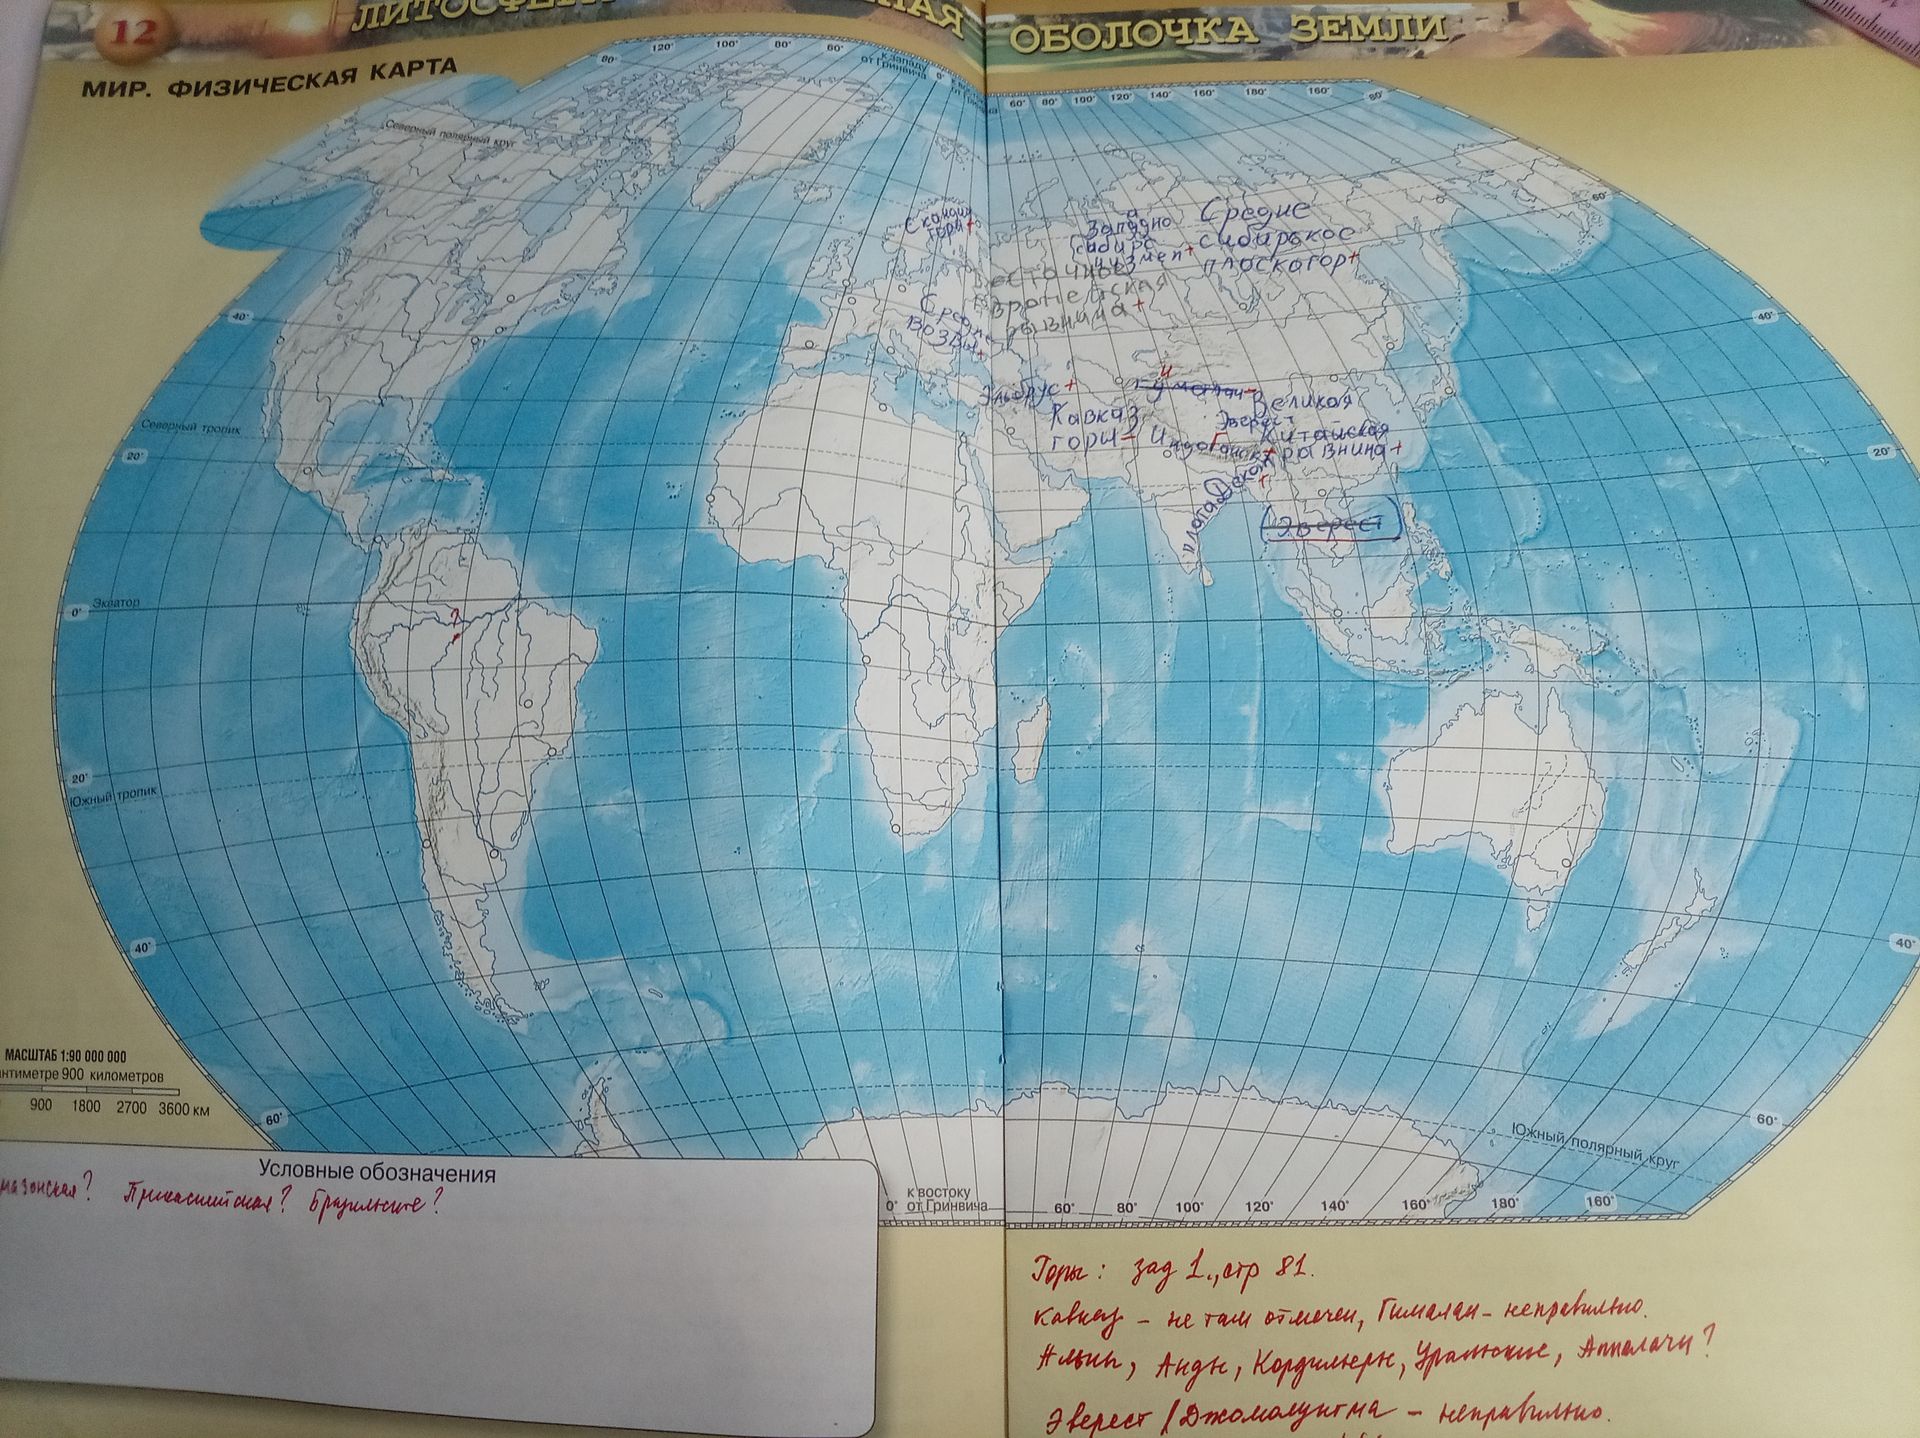 12
ОБОЛОЧКА ЗЕМЛИ
МИР. ФИЗИЧЕСКАЯ КАРТА
120° 100° 80° 60°
80°
к западу
от Гринвича
0°
60° 80° 100° 120° 140° 160° 180° 160°
80°
Северный полярный круг
60°
Сканди
горы+
Западно
сибирс
низмен+
Средне
сибирское
плоскогор+
Восточно
Европейская
равнина+
40°
40°
Эльбрус+
Кавказ
горы-
Великая
Китайская
равнина+
Эверест
плата Декан
+
Эверест
Северный тропик
20°
20°
0°
Экватор
?
20°
Южный тропик
40°
40°
МАСШТАБ 1:90 000 000
900 километров
900 1800 2700 3600 км
60°
60°
Южный полярный круг
Условные обозначения
Прикаспийская? Бразильские?
0°
к востоку
от Гринвича
60° 80° 100° 120° 140° 160° 180° 160°
Горы: зад 1., стр 81.
Кавказ - не там отмечен, Гималаи - неправильно.
Альпы, Анды, Кордильеры, Уральские, Аппалачи?
Эверест /Джомолунгма - неправильно.